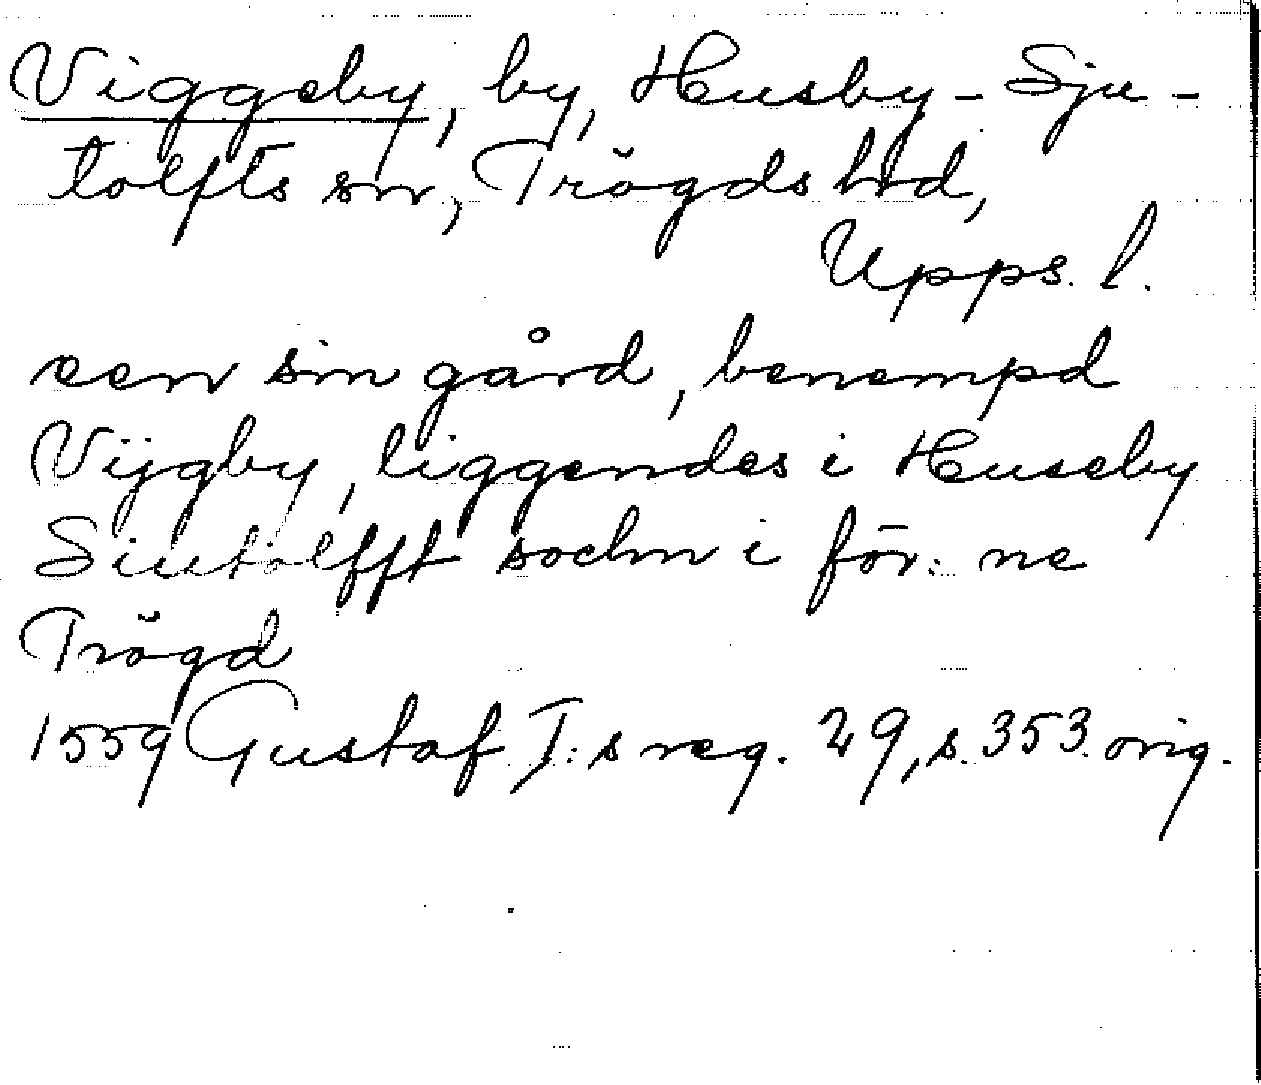 Viggeby, by, Husby-Sju-
tolfts sn, Trögds hd,
Upps. l.
een sin gård, benempd
Vijgby, liggendes i Huseby
Siutolfft sochn i för: ne
Trögd
1559 Gustaf I:s reg. 29, s. 353. orig.